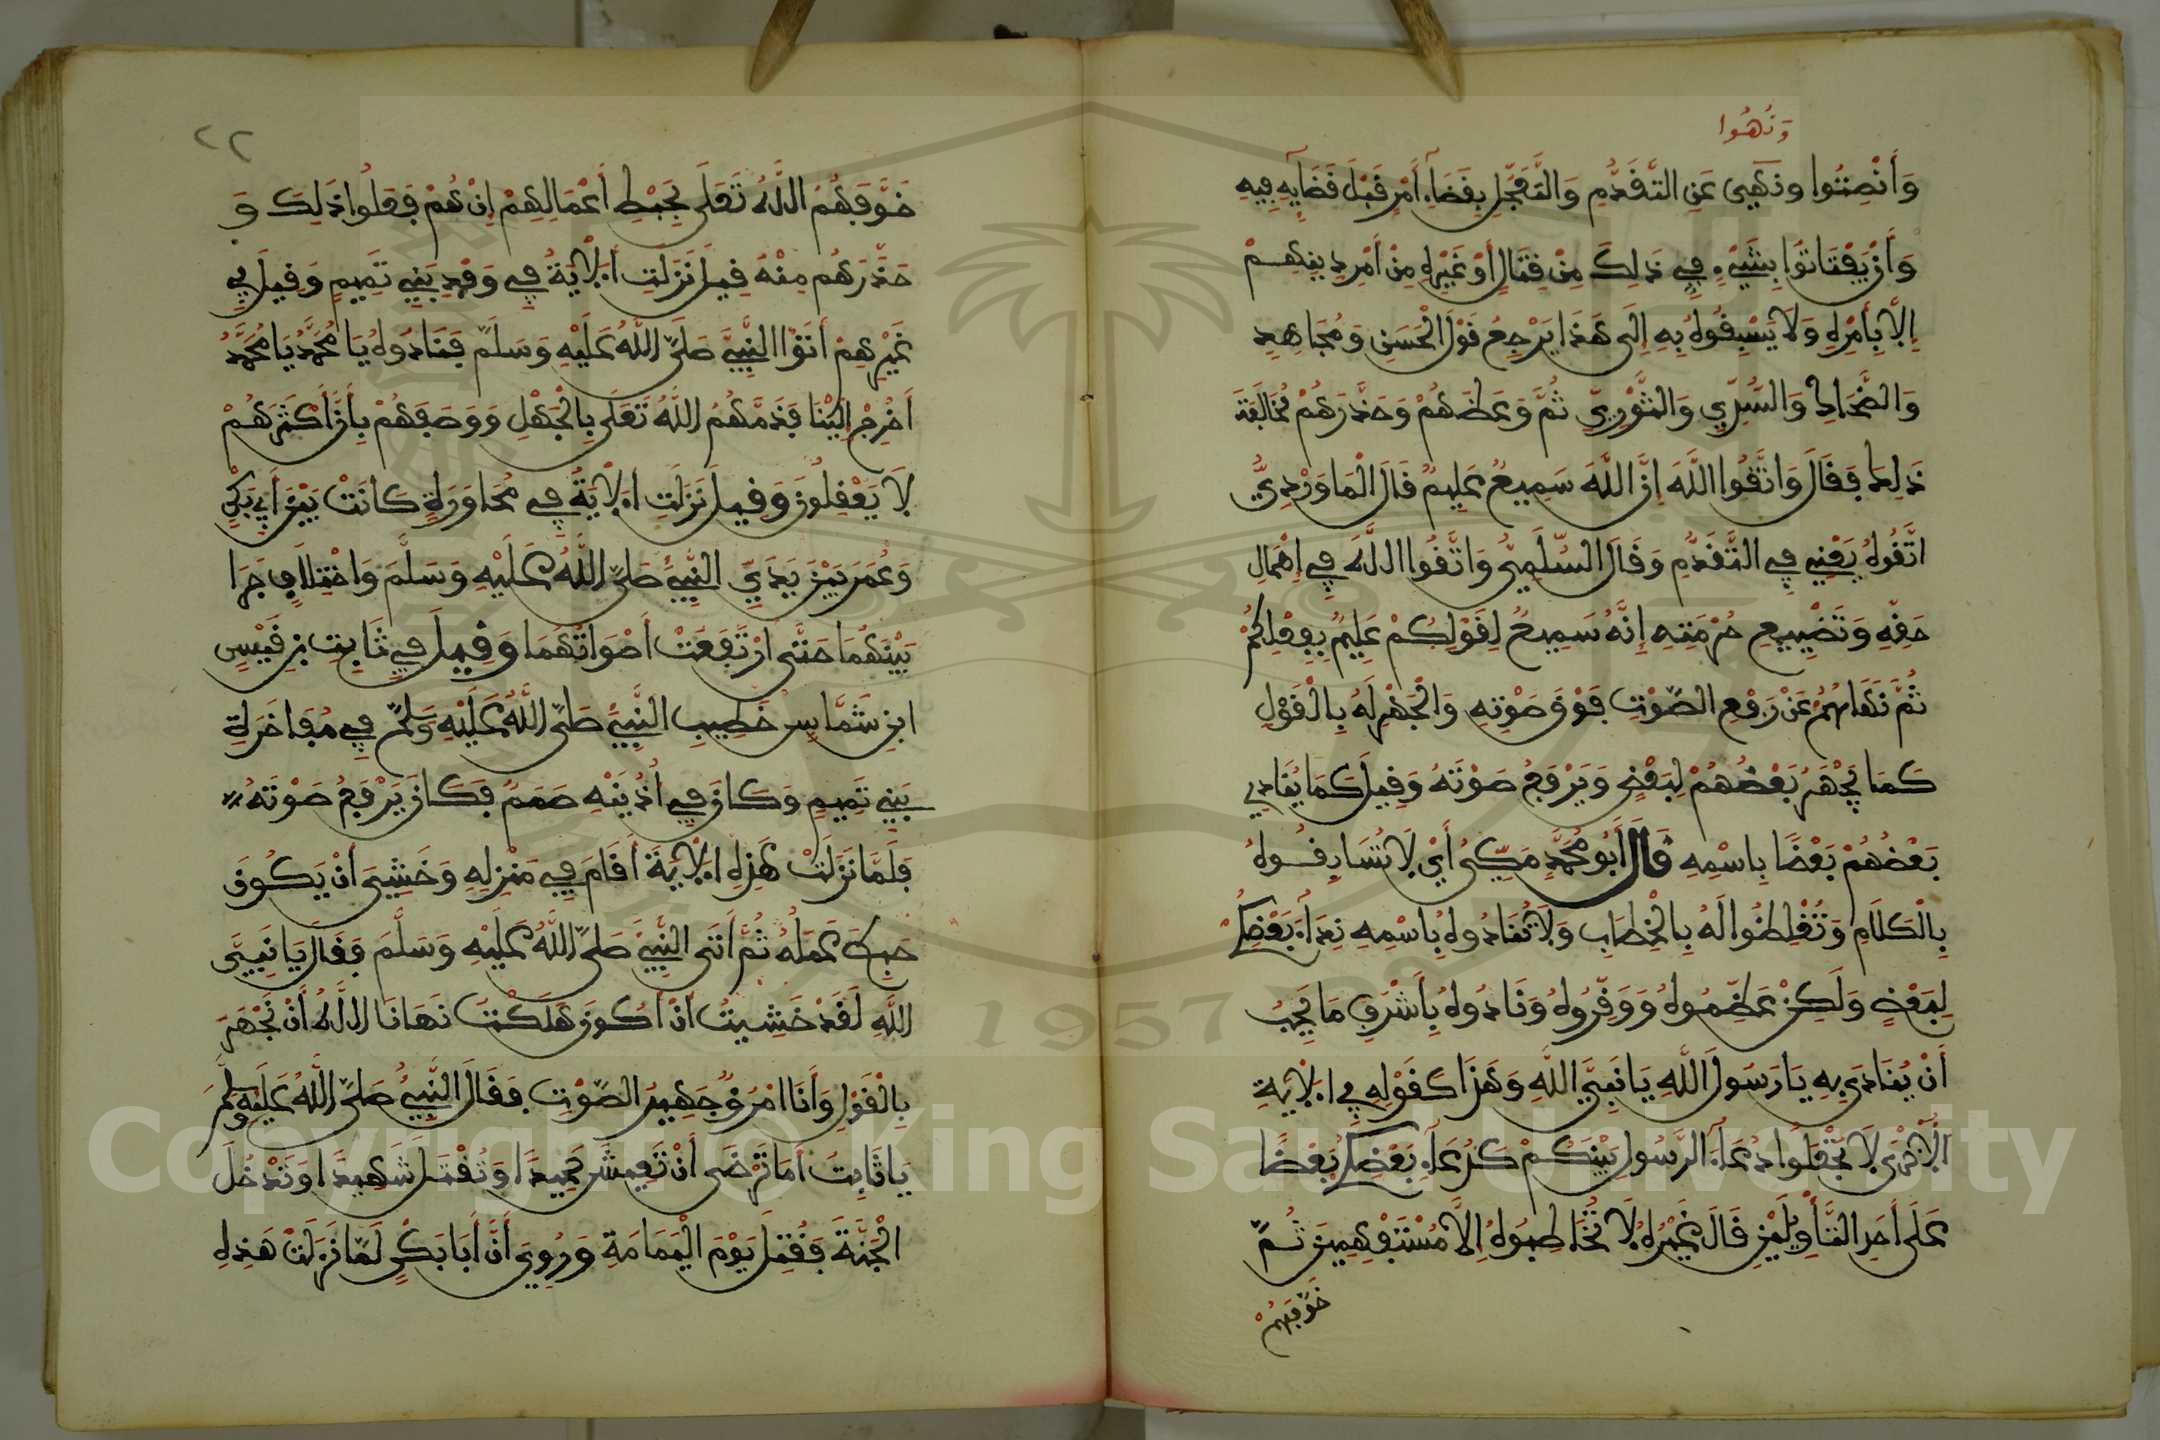 وَنُهُوا
وَأَنْصِتُوا ونهى عَنِ التَّقَدُّمِ وَالتَّعَجُّلِ بِقَضَاءِ أَمْرٍ قَبْلَ قَضَائِهِ فِيهِ
وَأَنْ يَفْتَاتُوا بِشَيْءٍ فِي ذَلِكَ مِنْ قِتَالٍ أَوْ غَيْرِهِ مِنْ أَمْرِ دِينِهِمْ
إِلَّا بِأَمْرِهِ وَلَا يَسْبِقُوهُ بِهِ إِلَى هَذَا يَرْجِعُ قَوْلُ الْحَسَنِ وَمُجَاهِدٍ
وَالضَّحَّاكِ وَالسُّدِّيِّ وَالثَّوْرِيِّ ثُمَّ وَعَظَهُمْ وَحَذَّرَهُمْ مُخَالَفَةَ
ذَلِكَ فَقَالَ وَاتَّقُوا اللَّهَ إِنَّ اللَّهَ سَمِيعٌ عَلِيمٌ قَالَ الْمَاوَرْدِيُّ
اتَّقُوهُ يَعْنِي فِي التَّقَدُّمِ وَقَالَ السُّلَمِيُّ وَاتَّقُوا اللَّهَ فِي إِهْمَالِ
حَقِّهِ وَتَضْيِيعِ حُرْمَتِهِ إِنَّهُ سَمِيعٌ لِقَوْلِكُمْ عَلِيمٌ بِفِعْلِكُمْ
ثُمَّ نَهَاهُمْ عَنْ رَفْعِ الصَّوْتِ فَوْقَ صَوْتِهِ وَالْجَهْرِ لَهُ بِالْقَوْلِ
كَمَا يَجْهَرُ بَعْضُهُمْ لِبَعْضٍ وَيَرْفَعُ صَوْتَهُ وَقِيلَ كَمَا يُنَادِي
بَعْضُهُمْ بَعْضًا بِاسْمِهِ قَالَ أَبُو مُحَمَّدٍ مَكِّيٌّ أَيْ لَا تُسَابِقُوهُ
بِالْكَلَامِ وَتُغْلِظُوا لَهُ بِالْخِطَابِ وَلَا تُنَادُوهُ بِاسْمِهِ نِدَاءَ بَعْضِكُمْ
لِبَعْضٍ وَلَكِنْ عَظِّمُوهُ وَوَقِّرُوهُ وَنَادُوهُ بِأَشْرَفِ مَا يُحِبُّ
أَنْ يُنَادَى بِهِ يَا رَسُولَ اللَّهِ يَا نَبِيَّ اللَّهِ وَهَذَا كَقَوْلِهِ فِي الْآيَةِ
الْأُخْرَى لَا تَجْعَلُوا دُعَاءَ الرَّسُولِ بَيْنَكُمْ كَدُعَاءِ بَعْضِكُمْ بَعْضًا
عَلَى أَحَدِ التَّأْوِيلَيْنِ قَالَ غَيْرُهُ لَا تُخَاطِبُوهُ إِلَّا مُسْتَفْهِمِينَ ثُمَّ
خَوَّفَهُمْ
٢٢
خَوَّفَهُمُ اللَّهُ تَعَالَى بِحَبْطِ أَعْمَالِهِمْ إِنْ هُمْ فَعَلُوا ذَلِكَ وَ
حَذَّرَهُمْ مِنْهُ قِيلَ نَزَلَتِ الْآيَةُ فِي وَفْدِ بَنِي تَمِيمٍ وَقِيلَ فِي
غَيْرِهِمْ أَتَوُا النَّبِيَّ صَلَّى اللَّهُ عَلَيْهِ وَسَلَّمَ فَنَادَوْهُ يَا مُحَمَّدُ يَا مُحَمَّدُ
أَخْرِجْ إِلَيْنَا فَذَمَّهُمُ اللَّهُ تَعَلَى بِالْجَهْلِ وَوَصَفَهُمْ بِأَنَّ أَكْثَرَهُمْ
لَا يَعْقِلُونَ وَقِيلَ نَزَلَتِ الْآيَةُ فِي مُحَاوَرَةٍ كَانَتْ بَيْنَ أَبِي بَكْرٍ
وَعُمَرَ بَيْنَ يَدَيِ النَّبِيِّ صَلَّى اللَّهُ عَلَيْهِ وَسَلَّمَ وَاخْتِلَافٍ جَرَا
بَيْنَهُمَا حَتَّى ارْتَفَعَتْ أَصْوَاتُهُمَا وَقِيلَ فِي ثَابِتِ بْنِ قَيْسِ
ابْنِ شَمَّاسٍ خَطِيبِ النَّبِيِّ صَلَّى اللَّهُ عَلَيْهِ وَسَلَّمَ فِي مُفَاخَرَةِ
بَنِي تَمِيمٍ وَكَانَ فِي أُذُنَيْهِ صَمَمٌ فَكَانَ يَرْفَعُ صَوْتَهُ
فَلَمَّا نَزَلَتْ هَذِهِ الْآيَةُ أَقَامَ فِي مَنْزِلِهِ وَخَشِيَ أَنْ يَكُونَ
حَبِطَ عَمَلُهُ ثُمَّ أَتَى النَّبِيَّ صَلَّى اللَّهُ عَلَيْهِ وَسَلَّمَ فَقَالَ يَا نَبِيَّ
اللَّهِ لَقَدْ خَشِيتُ أَنْ أَكُونَ هَلَكْتُ نَهَانَا اللَّهُ أَنْ نَجْهَرَ
بِالْقَوْلِ وَأَنَا امْرُؤٌ جَهِيرُ الصَّوْتِ فَقَالَ النَّبِيُّ صَلَّى اللَّهُ عَلَيْهِ وَسَلَّمَ
يَا ثَابِتُ أَمَا تَرْضَى أَنْ تَعِيشَ حَمِيدًا وَتُقْتَلَ شَهِيدًا وَتَدْخُلَ
الْجَنَّةَ فَقُتِلَ يَوْمَ الْيَمَامَةِ وَرُوِيَ أَنَّ أَبَا بَكْرٍ لَمَّا نَزَلَتْ هَذِهِ
1957
Copyright © King Saud University